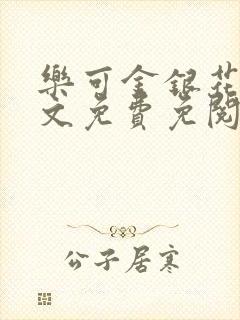 樂可金銀花
文免費免閱
公子居寒